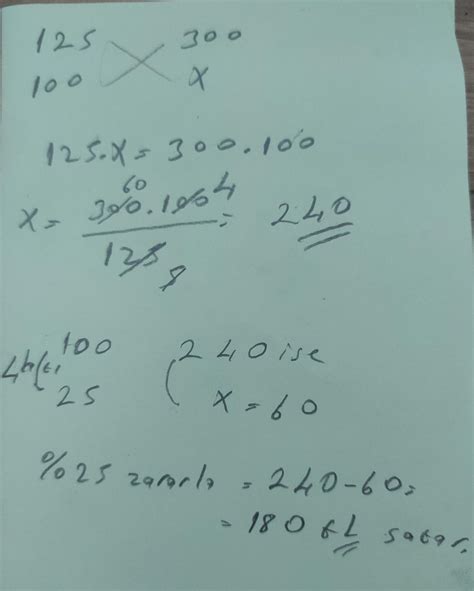 125 300
100 x
125.x = 300.100
60 4
x = 300.100 = 240
125
100 240 ise
25 x = 60
%25 zararla = 240-60=
= 180 tL satar.